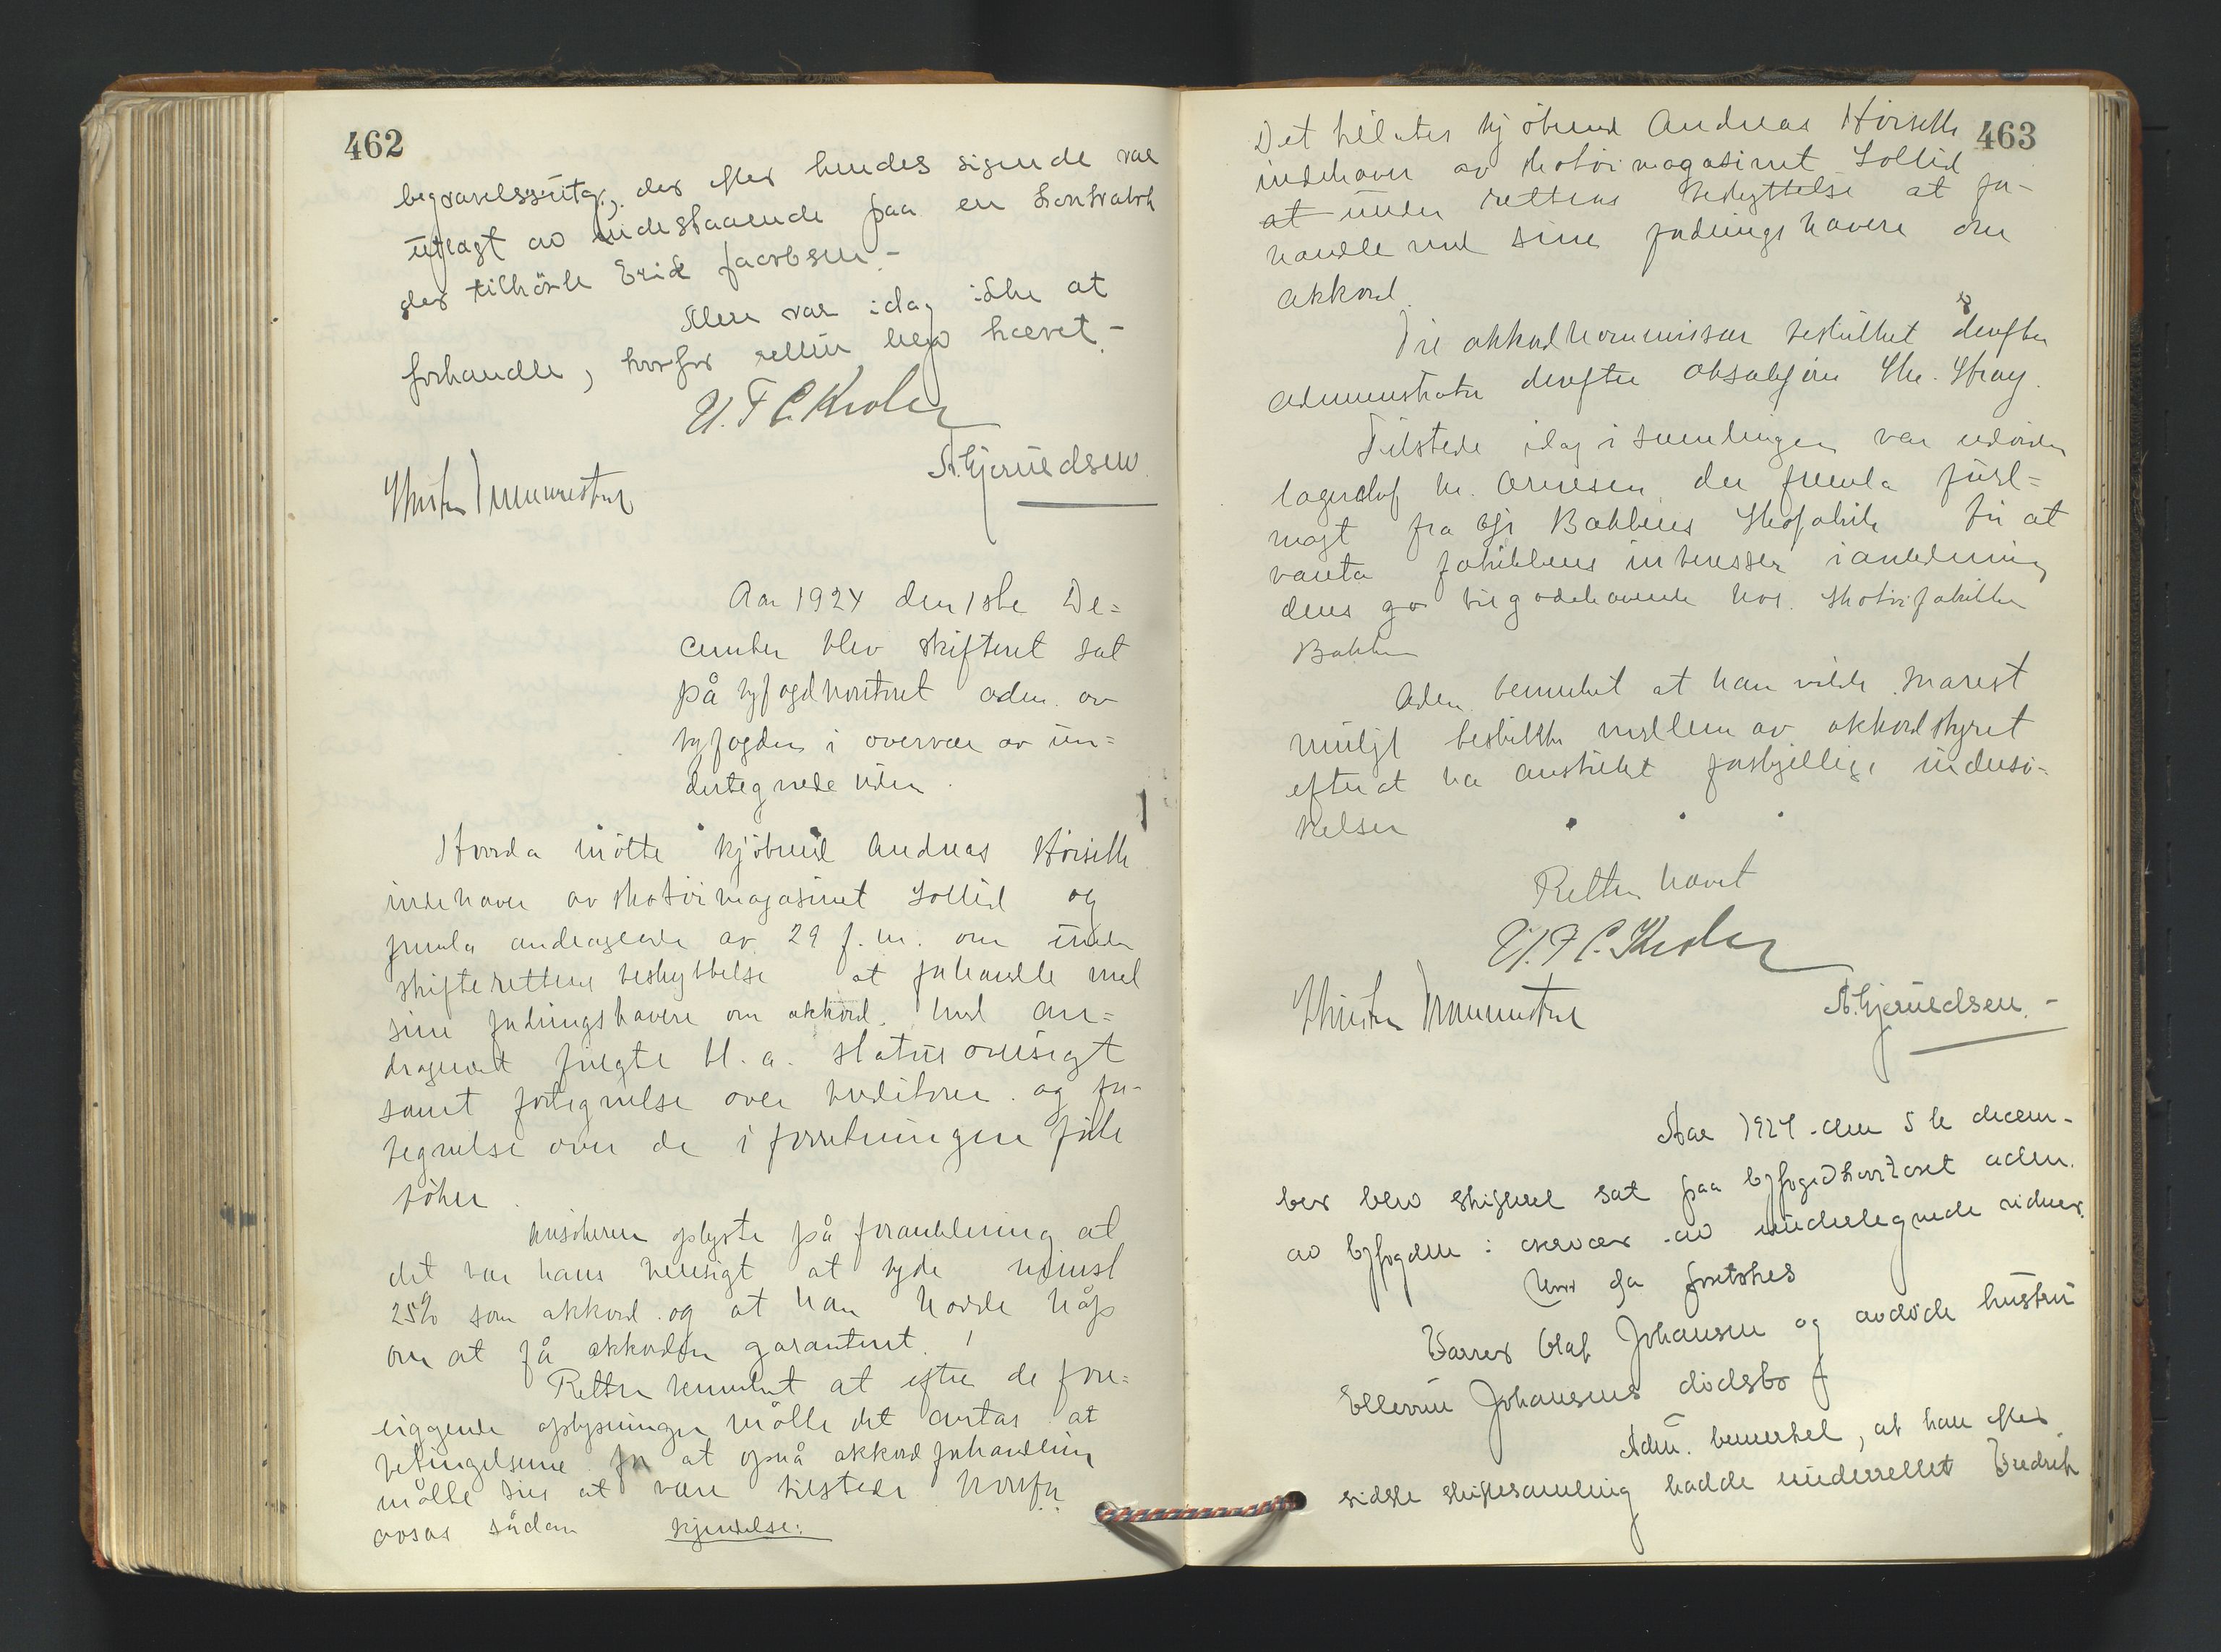 462
begravelsesutg., der efter hendes sigende var
utlagt av indestaaende paa en kontrabok
der tilhörte Erik Jacobsen.-
Mere var idag ikke at
forhandle, hvorfor retten blev hævet.-
U.F.C.
A. Gjerüldsen
Aar 1924 den 1ste De=
cember blev skifteret sat
på byfogdkontoret adm. av
byfogden i overvær av ün=
dertegnede vidner.
Hvorda mötte kjöbmd Andreas Höiseth
indehaver av skotöimagasinet Solid og
fremla andragende av 29 f.m. om ünder
skifterettens beskyttelse at forhandle med
sine fordringshavere om akkord. Med an=
dragendet fulgte bl.a. status oversigt
samt fortegnelse over kreditorer og for-
tegnelse over de i forretningen förte
böker.
Ansökeren oplyste på foranledning at
det var hans hensigt at byde mindst
25% som akkord og at han hadde håp
om at få akkorden garanteret.
Retten bemerket at efter de fore=
liggende oplysninger måtte det antas at
betingelserne for at opnå akkordforhandling
måtte sies at være tilstede hvorfor
avsas sådan kjendelse:
463
Det tillates kjöbmd Andreas Höiseth
indehaver av skotöimagasinet Solid
at ünder rettens beskyttelse at for-
handle med sine fordringshavere om
akkord.
Til akkordkommissær beskikket derefter
administrator derefter oksakförer Chr. Stray.
Tilstede idag i samlingen var endvidere
lagerchef hr. Arnesen, der fremla fuld=
magt fra A/S Bakkens Skofabrik for at
vareta fabrikkens interesser i anledning
dens tilgodehavende hos skotöifabrikken
Bakken
Adm. bemerket at han vilde snarest
muligt beskikke medlem av akkordstyret
efterat ha anstillet forskjellige undersö-
kelser
Retten hævet
U.F.C.
A. Gjerüldsen.-
Aar 1924 den 5te decem-
ber blev skifteret sat paa byfogedkontoret adm.
av byfogden i overvær av undertegnede vidner.
Hvor da foretokes
Olaf Johansen og avdöde hustru
Johansens dödsbo
Adm. bemerket, at han efter
sidste skiftesamling hadde underrettet Fredrik